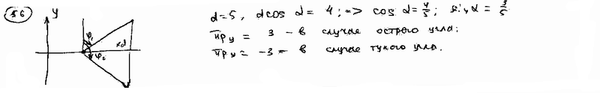 56
y
φ₁
φ₂
α
d = 5, d cos α = 4; => cos α = 4/5; sin α = 3/5
пр y = 3 - в случае острого угла;
пр y = -3 - в случае тупого угла.